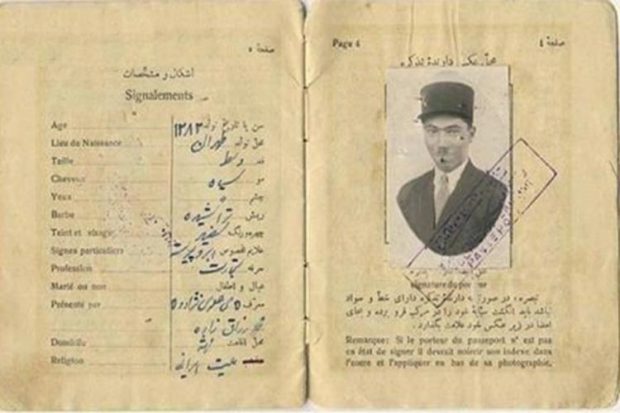 صفحهٔ ٥
اشکال و مشخصات
Signalements
Age سن یا تاریخ تولد ١٢٨٣
Lieu de Naissance محل تولد طهران
Taille قد وسط
Cheveux مو سیاه
Yeux چشم
Barbe ریش تراشیده
Teint et visage چهره و رنگ سفید
Signes particuliers علائم مخصوص
Profession حرفه تجارت
Marié ou non عیال و اطفال
Présenté par معرف
زاده
Domicile محل اقامت
Religion ملیت ایرانی
Page 4 صفحهٔ ٤
محل عکس دارندهٔ تذکره
signature du porteur
تبصره، در صورتیکه دارندهٔ تذکره دارای خط و سواد
نباشد باید انگشت سبابهٔ خود را در مرکب فرو برده و بجای
امضا در زیر عکس خود علامت بگذارد.
Remarque: Si le porteur du passeport n' est pas
en état de signer il devrait noircir son indexe dans
l'encre et l'appliquer en bas de sa photographie.